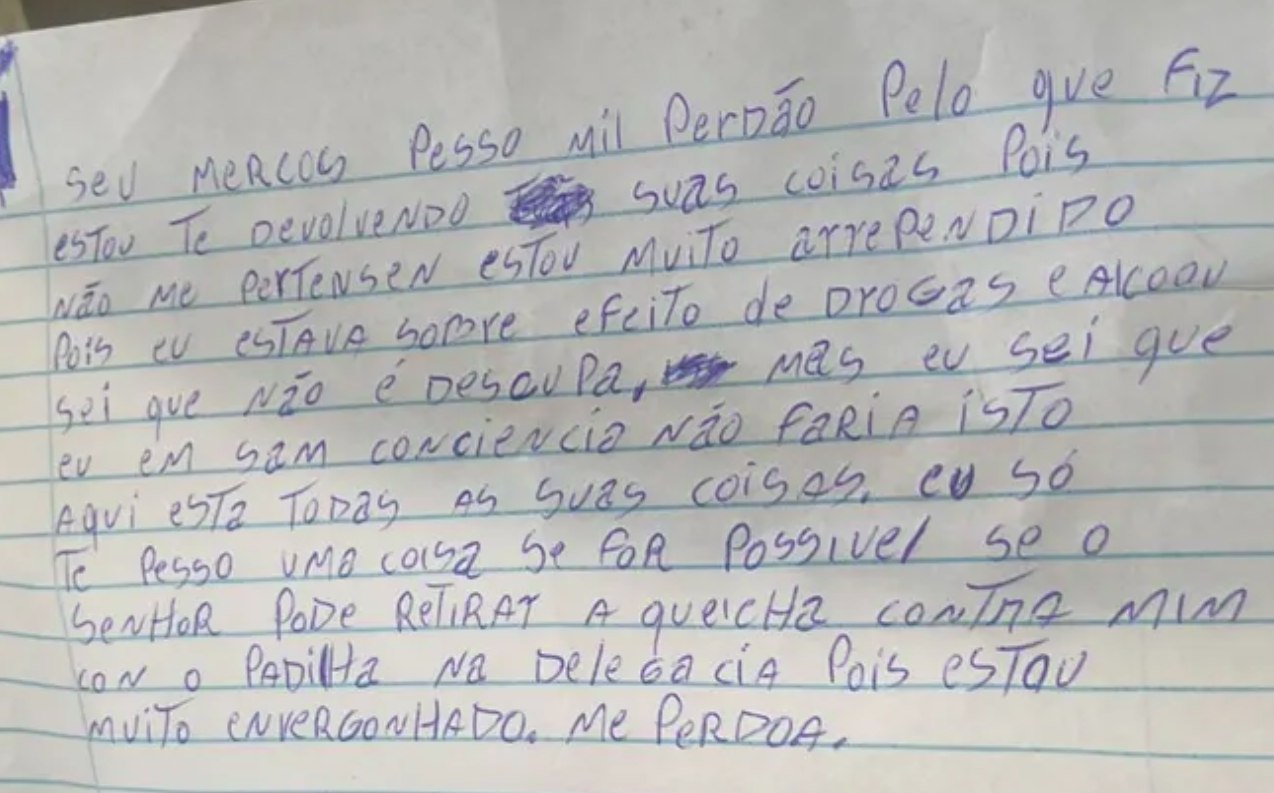 seu Mercos Pesso mil Perdão Pelo que Fiz
estou Te Devolvendo suas coisas Pois
Não me Pertensen estou muito arrependido
Pois eu estava sobre efeito de Drogas e Alcoou
sei que Não é Descupa, mas eu sei que
eu em sam conciencia Não faria isto
Aqui esta Todas as suas coisas. eu só
Te Pesso uma coisa se for Possivel se o
senhor Pode Retirar a queicha contra mim
con o Padilha na Delegacia Pois estou
muito envergonhado. me Perdoa.